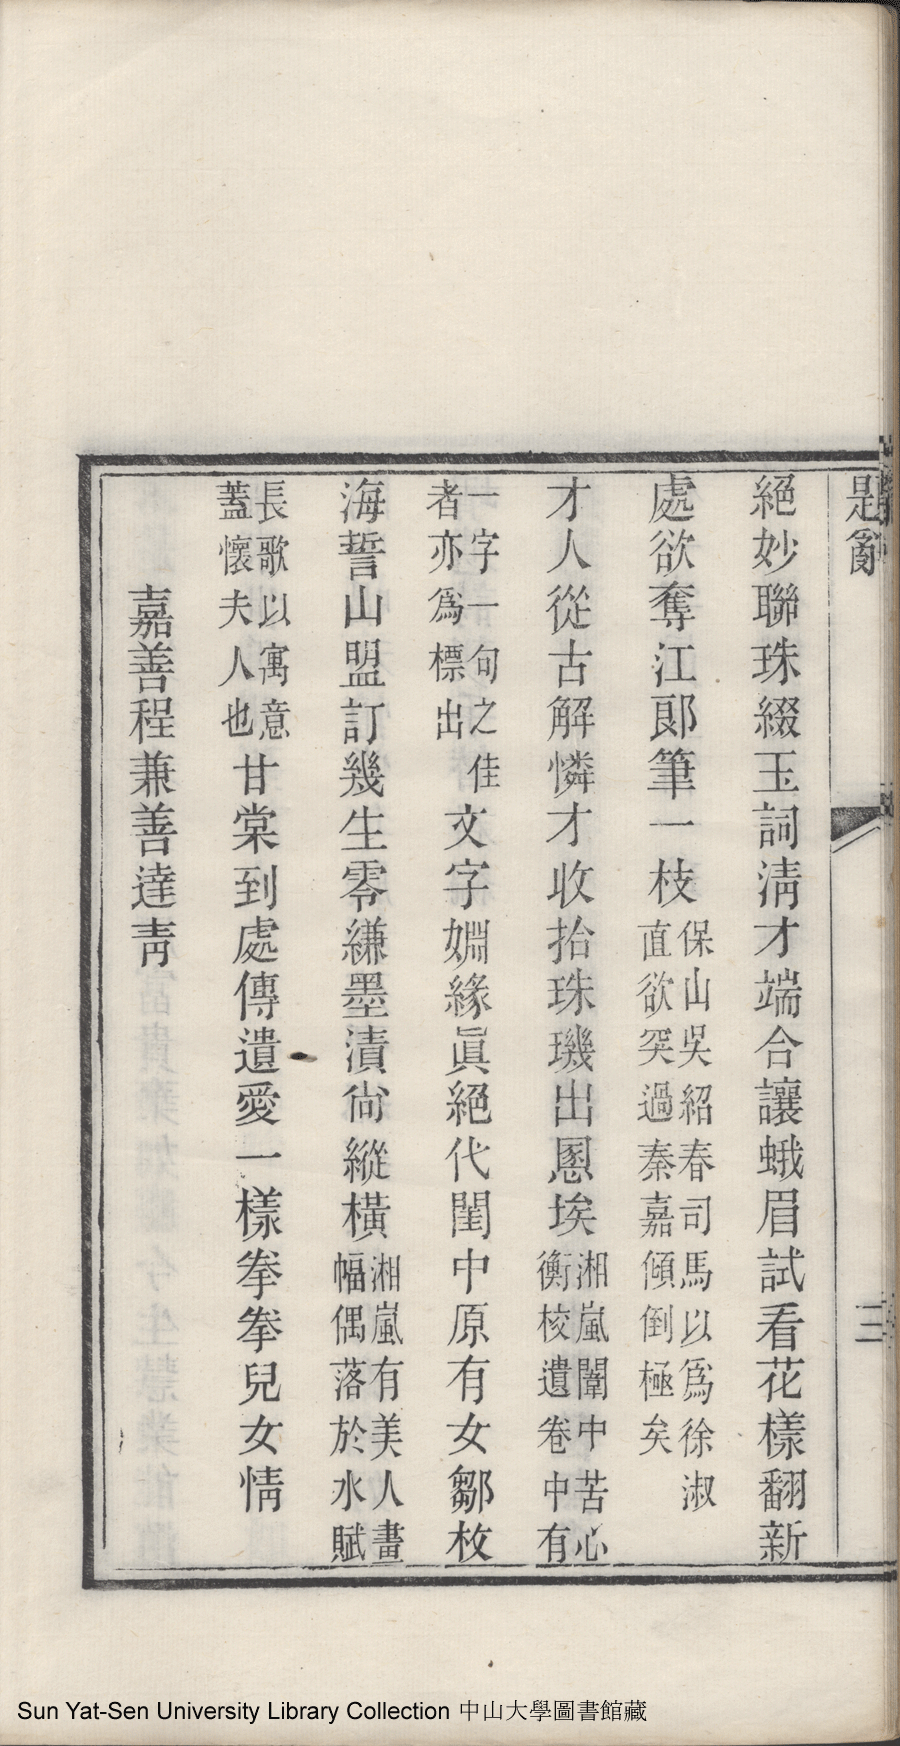 絕妙聯珠綴玉詞淸才端合讓蛾眉試看花樣翻新
處欲奪江郞筆一枝
保山吳紹春司馬以爲徐淑
直欲突過秦嘉傾倒極矣
才人從古解憐才收拾珠璣出圂埃
湘嵐闈中苦心
衡校遺卷中有
一字一句之佳
者亦爲標出
文字婣緣眞絕代閨中原有女鄒枚
海誓山盟訂幾生零縑墨漬尙縱橫
湘嵐有美人畫
幅偶落於水賦
長歌以寓意
蓋懷夫人也
甘棠到處傳遺愛一樣拳拳兒女情
嘉善程兼善達靑
三
Sun Yat-Sen University Library Collection 中山大學圖書館藏